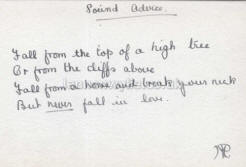 Sound Advice.
Fall from the top of a high tree
Or from the cliffs above
Fall from a horse and break your neck
But never fall in love.